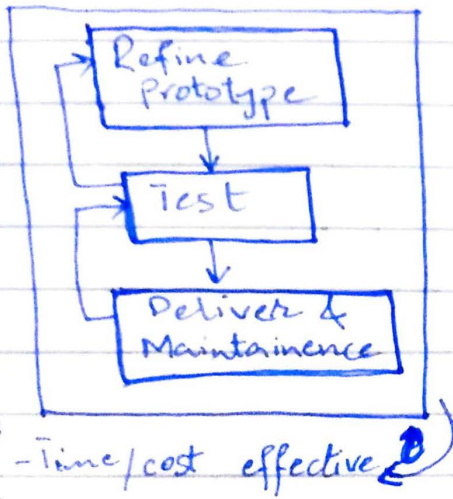 Refine
prototype
Test
Deliver &
Maintainence
-Time/cost effective